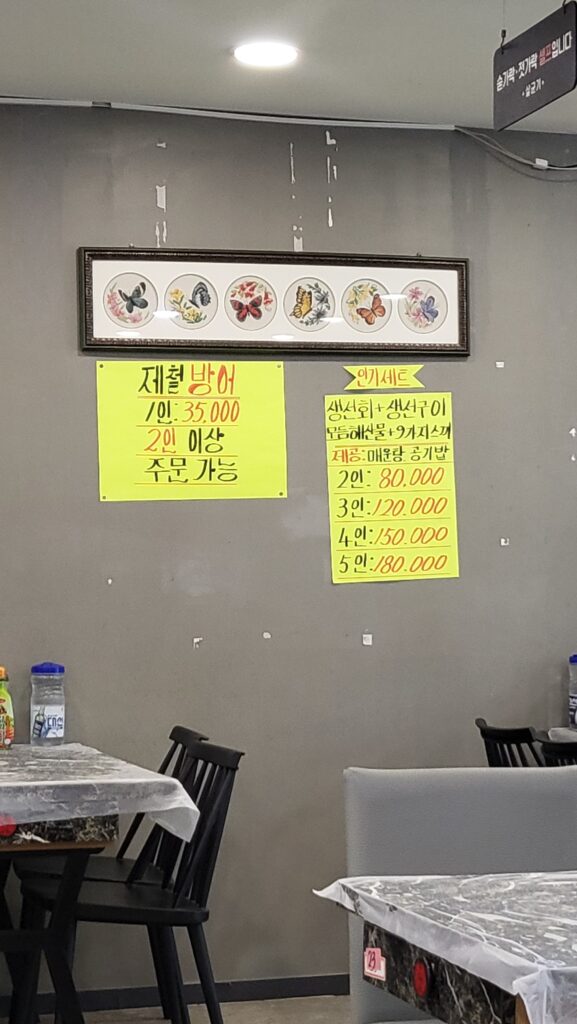 숟가락·젓가락 셀프입니다
•살균기•
제철 방어
1인: 35,000
2인 이상
주문 가능
인기세트
생선회+생선구이
모듬해산물+9가지스끼
제공: 매운탕, 공기밥
2인: 80,000
3인: 120,000
4인: 150,000
5인: 180,000
23